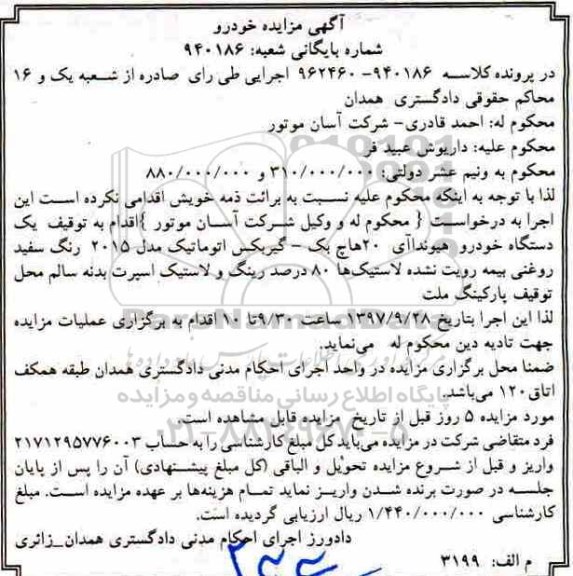 آگهی مزایده خودرو
شماره بایگانی شعبه: ۹۴۰۱۸۶
در پرونده کلاسه ۹۴۰۱۸۶- ۹۶۲۴۶۰ اجرایی طی رای صادره از شعبه یک و ۱۶
محاکم حقوقی دادگستری همدان
محکوم له: احمد قادری- شرکت آسان موتور
محکوم علیه: داریوش عبید فر
محکوم به ونیم عشر دولتی: ۳۱۰/۰۰۰/۰۰۰ و ۸۸۰/۰۰۰/۰۰۰
لذا با توجه به اینکه محکوم علیه نسبت به برائت ذمه خویش اقدامی نکرده است این
اجرا به درخواست { محکوم له و وکیل شرکت آسان موتور }اقدام به توقیف یک
دستگاه خودرو هیوندآآی ۲۰هاچ بک - گیربکس اتوماتیک مدل ۲۰۱۵ رنگ سفید
روغنی بیمه رویت نشده لاستیک‌ها ۸۰ درصد رینگ و لاستیک اسپرت بدنه سالم محل
توقیف پارکینگ ملت
لذا این اجرا بتاریخ ۱۳۹۷/۹/۲۸ ساعت ۹/۳۰تا ۱۰ اقدام به برگزاری عملیات مزایده
جهت تادیه دین محکوم له می‌نماید.
ضمنا محل برگزاری مزایده در واحد اجرای احکام مدنی دادگستری همدان طبقه همکف
اتاق۱۲۰ می‌باشد.
مورد مزایده ۵ روز قبل از تاریخ مزایده قابل مشاهده است.
فرد متقاضی شرکت در مزایده می‌باید کل مبلغ کارشناسی را به حساب ۲۱۷۱۲۹۵۷۷۶۰۰۳
واریز و قبل از شروع مزایده تحویل و الباقی (کل مبلغ پیشنهادی) آن را پس از پایان
جلسه در صورت برنده شدن واریز نماید تمام هزینه‌ها بر عهده مزایده است. مبلغ
کارشناسی ۱/۴۴۰/۰۰۰/۰۰۰ ریال ارزیابی گردیده است.
دادورز اجرای احکام مدنی دادگستری همدان_زائری
م الف: ۳۱۹۹